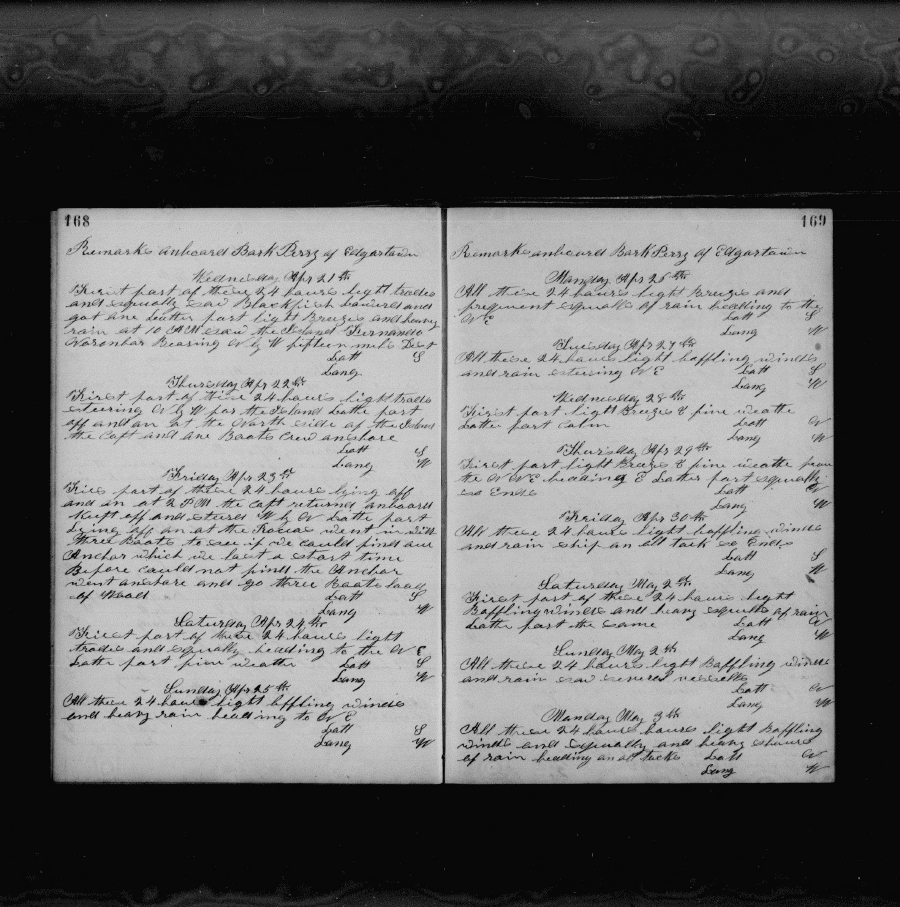 168
Remarks onboard Bark Perry of Edgartown
Wednesday Apr 21th
First part of these 24 hours light trades
and squally saw Blackfish lowered and
got one Latter part light Breezes and heavy
rain at 10 AM saw the Island Fernando
Noronhar Bearing N by W fifteen mile Dist
Latt S
Long
Thursday Apr 22th
First part of these 24 hours light trade
steering N by W for the Island Latte part
off and on at the North side of the Island
the Capt and one Boats Crew onshore
Latt S
Long W
Friday Apr 23th
Firs part of these 24 hours lying off
and on at 2 PM the Capt returned onboard
Kept off and sterd W by N Latte part
Lying off on at the went in with
three Boats to see if we could find our
Anchor which we lost a short time
Before could not find the Anchor
went onshore and go three Boats load
of Wood
Latt S
Long W
Saturday Apr 24th
First part of these 24 hours light
trades and squally heading to the N E
Latte part fine weathe Latt S
Long W
Sunday Apr 25th
All these 24 hours light bffling winds
and heavy rain heading to N E
Latt S
Long W
169
Remarks onboard Bark Perry of Edgartown
Monday Apr 26th
All these 24 hours light Breezes and
frequent squalls of rain heading to the
N E Latt S
Long W
Tuesday Apr 27th
All these 24 hours light baffling winds
and rain steering N E Latt S
Long W
Wednesday 28th
First part light Breezes & fine weathe
Latte part Calm Latt N
Long W
Thursday Apr 29th
First part light Breezes & fine weathe from
the N N E heading E Latter part squally
so Ends Latt
Long W
Friday Apr 30th
All these 24 hours light baffling winds
and rain ship on all tack so Ends
Latt S
Long W
Saturday May 2th
First part of these 24 hours light
Baffling winds and heavy squalls of rain
Latte part the same Latt N
Long W
Sunday May 2th
All these 24 hours light Baffling winds
and rain saw several vessells
Latt N
Long W
Monday May 3th
All these 24 hours hours light Baffling
winds and squally and heavy shours
of rain heading on all tacks Latt N
Long W